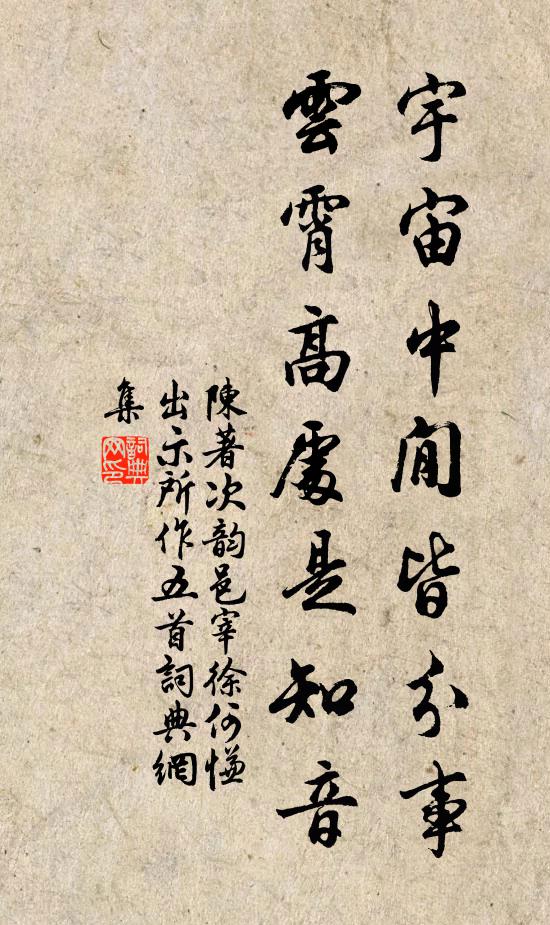 宇宙中間皆分事
雲霄高處是知音
陳著次韵邑宰徐何慊
出示所作五首詞典網
集
詞典網印